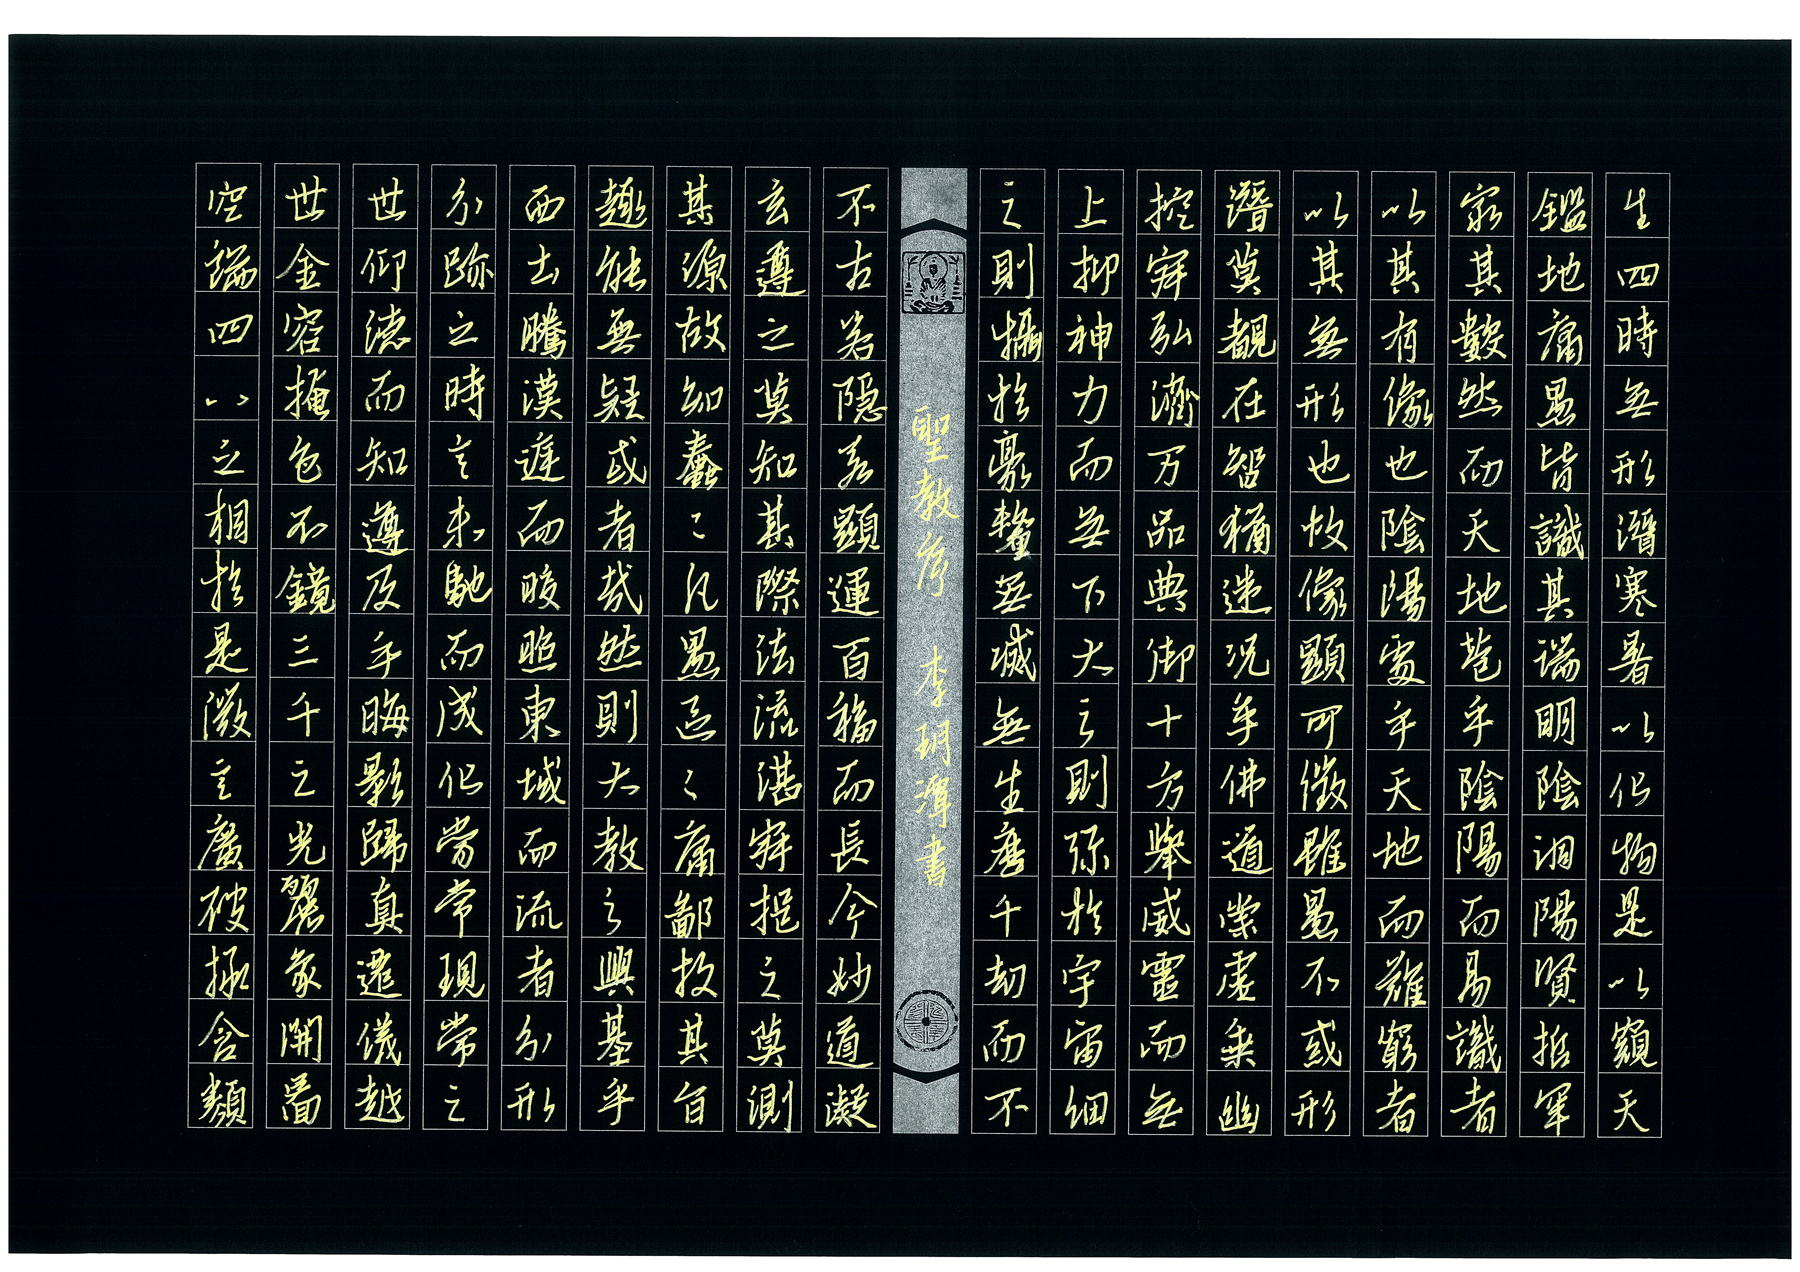 生四時無形潛寒暑以化物是以窺天
鑑地庸愚皆識其端明陰洞陽賢哲罕
窮其數然而天地苞乎陰陽而易識者
以其有像也陰陽處乎天地而難窮者
以其無形也故像顯可徵雖愚不惑形
潛莫覩在智猶迷況乎佛道崇虛乘幽
控寂弘濟万品典御十方舉威靈而無
上抑神力而無下大之則彌於宇宙細
之則攝於豪釐無滅無生歷千劫而不
聖教序 李玥潭書
不古若隱若顯運百福而長今妙道凝
玄遵之莫知其際法流湛寂挹之莫測
其源故知蠢〻凡愚區〻庸鄙投其旨
趣能無疑或者哉然則大教之興基乎
西土騰漢庭而皎照東域而流者分形
分跡之時言未馳而成化當常現常之
世仰德而知遵及乎晦影歸真遷儀越
世金容掩色不鏡三千之光麗象開圖
空端四八之相於是微言廣被拯含類